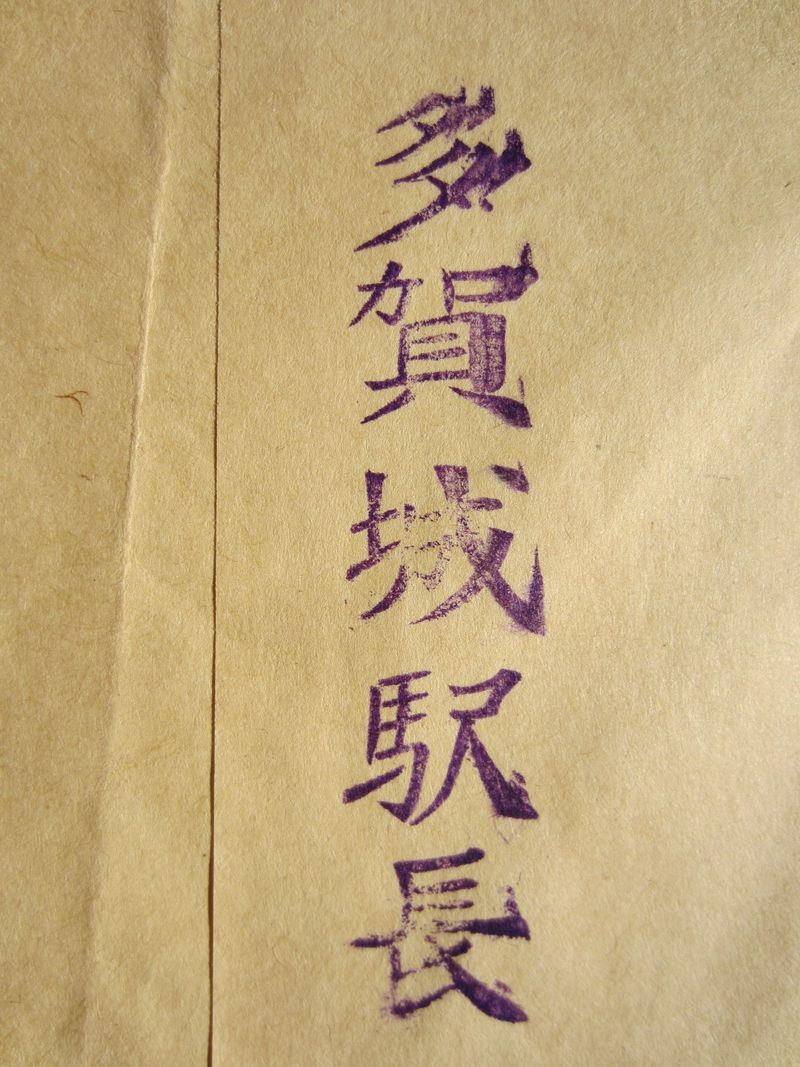 多賀城駅長